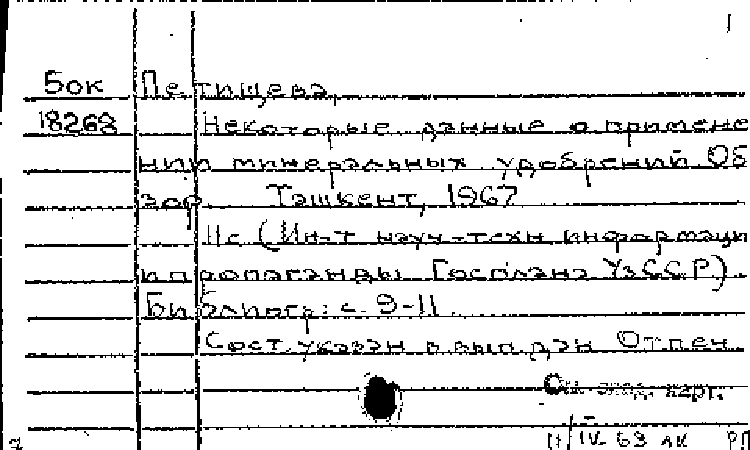 1
Бок Петищева,
18268 Некоторые данные о примене
нии минеральных удобрений. Об
зор. Ташкент, 1967
11с (Ин-т науч-техн информаци
и пропаганды Госплана УзССР).
Библиогр: с. 9-11.
Сост. указан в вып. дан Отпеч.
См. зад. карт.
IV 69 лк РП